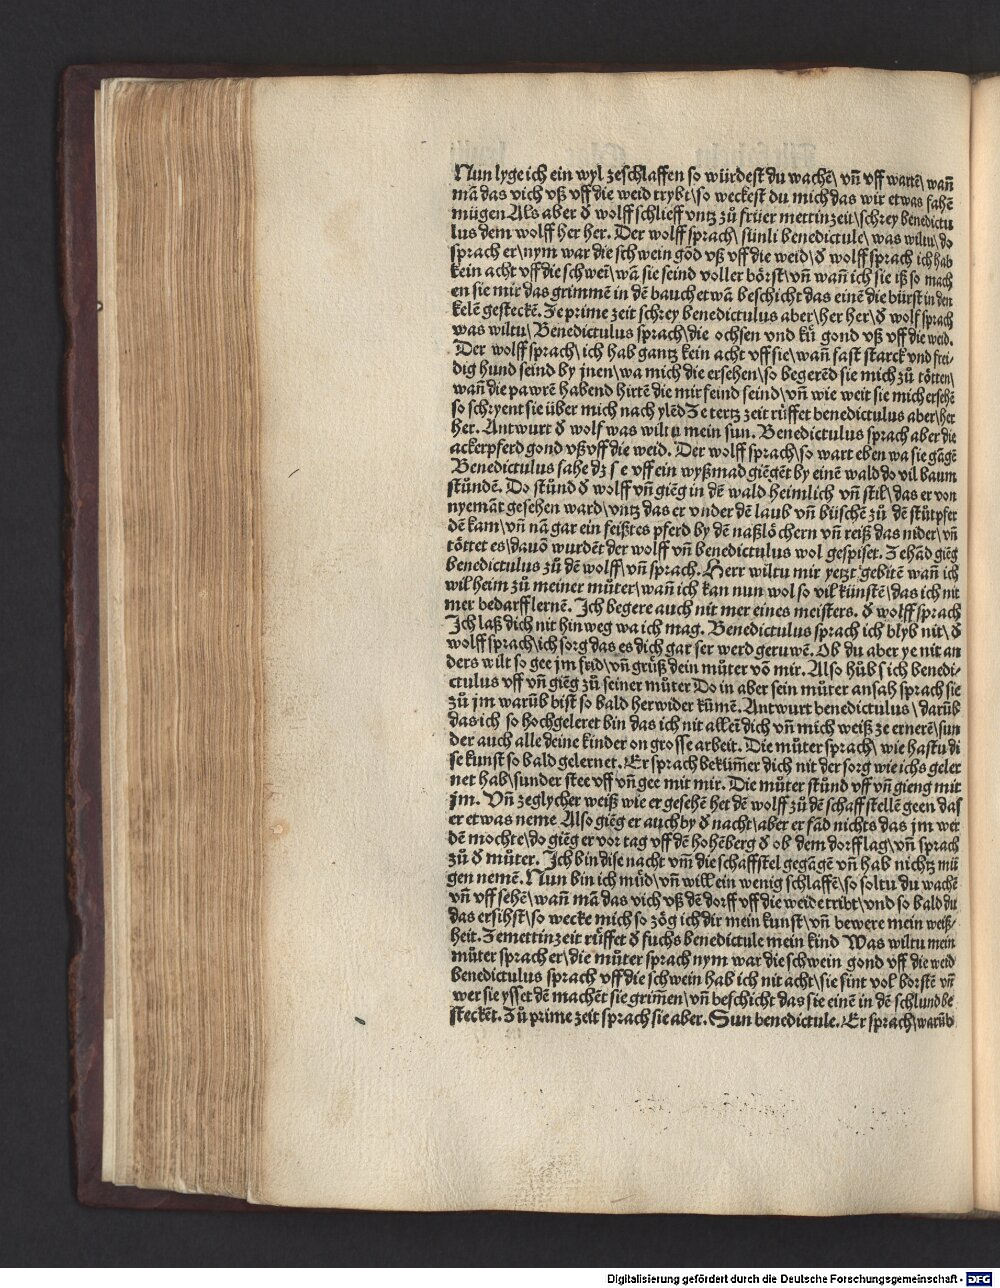 Nun lyge ich ein wyl zeschlaffen so würdest du wachē\ vn̄ vff wartē\ wan̄
mā das vich vß vff die weid trybt\ so weckest du mich das wir etwas fahē
mügen Als aber ð wolff schlieff vntz zů früer mettinzeit\ schrey benedictu
lus dem wolff her her. Der wolff sprach\ sünli benedictule\ was wiltu\ do
sprach er\ nym war die schwein god vß vff die weid\ ð wolff sprach ich hab
kein acht vff die schwei\ wā sie seind voller börst\ vn̄ wan̄ ich sie iß so mach
en sie mir das grimmē in dē bauch etwā beschicht das einē die bürst in den
kelē gesteckē. Ze prime zeit schrey benedictulus aber\ her her\ ð wolf sprach
was wiltu\ Benedictulus sprach\ die ochsen vnd kü gond vß vff die weid.
Der wolff sprach\ ich hab gantz kein acht vff sie\ wan̄ fast starck vnd frei-
dig hund seind by jnen\ wa mich die ersehen\ so begerēd sie mich zů tötten\
wan̄ die pawrē habend hirtē die mir feind seind\ vn̄ wie weit sie mich ersehē
so schryent sie über mich nach ylēd Ze tertz zeit rüffet benedictulus aber\ her
her. Antwurt ð wolf was wiltu mein sun. Benedictulus sprach aber die
ackerpferd gond vß vff die weid. Der wolff sprach\ so wart eben wa sie gāgē
Benedictulus sahe dz s e vff ein wyßmad giēgēt by einē wald do vil baum
stündē. Do stůnd ð wolff vn̄ giēg in dē wald heimlich vn̄ stil\ das er von
nyemāt gesehen ward\ vntz das er vnder dē laub vn̄ büschē zů dē stůtpfer
dē kam\ vn̄ nā gar ein feißtes pferd by dē naßlöchern vn̄ reiß das nider\ vn̄
töttet es\ dauō wurdēt der wolff vn̄ benedictulus wol gespiset. Zehād giēg
benedictulus zů dē wolff\ vn̄ sprach. Herr wiltu mir yetzt gebitē wan̄ ich
wil heim zů meiner můter\ wan̄ ich kan nun wol so vil künstē\ das ich nit
mer bedarff lernē. Ich begere auch nit mer eines meisters. ð wolff sprach
Ich laß dich nit hinweg wa ich mag. Benedictulus sprach ich blyb nit\ ð
wolff sprach\ ich sorg das es dich gar ser werd geruwē. Ob du aber ye nit an
ders wilt so gee jm frid\ vn̄ grüß dein můter vō mir. Also hůb sich benedi-
ctulus vff vn̄ giēg zů seiner můter Do in aber sein můter ansah sprach sie
zů jm warüb bist so bald her wider kümē. Antwurt benedictulus\ darüb
das ich so hochgeleret bin das ich nit alleī dich vn̄ mich weiß ze ernerē\ sun
der auch alle deine kinder on grosse arbeit. Die můter sprach\ wie hastu di
se kunst so bald gelernet. Er sprach bekūmer dich nit der sorg wie ichs geler
net hab\ sunder stee vff vn̄ gee mit mir. Die můter stůnd vff vn̄ gieng mit
jm. Vn̄ zeglycher weiß wie er gesehē het dē wolff zů dē schaff stellē geen das
er etwas neme Also giēg er auch by ð nacht\ aber er fād nichts das jm wer
dē mochte\ do giēg er vor tag vff dē hohēberg ð ob dem dorff lag\ vn̄ sprach
zů ð můter. Ich bin dise nacht vm̄ die schaffstel gegāgē vn̄ hab nichtz mü
gen nemē. Nun bin ich müd\ vn̄ will ein wenig schlaffē\ so soltu du wachē
vn̄ vff sehē\ wan̄ mā das vich vß dē dorff vff die weide tribt\ vnd so bald du
das ersihst\ so wecke mich so zög ich dir mein kunst\ vn̄ bewere mein weiß-
heit. Zemettinzeit rüffet ð fuchs benedictule mein kind Was wiltu mein
můter sprach er\ die můter sprach nym war die schwein gond vff die weid
benedictulus sprach vff die schwein hab ich nit acht\ sie sint vol borstē vn̄
wer sie ysset dē machēt sie grim̄en\ vn̄ beschicht das sie einē in dē schlund be
steckēt. Zů prime zeit sprach sie aber. Sun benedictule. Er sprach\ warüb
Digitalisierung gefördert durch die Deutsche Forschungsgemeinschaft - DFG